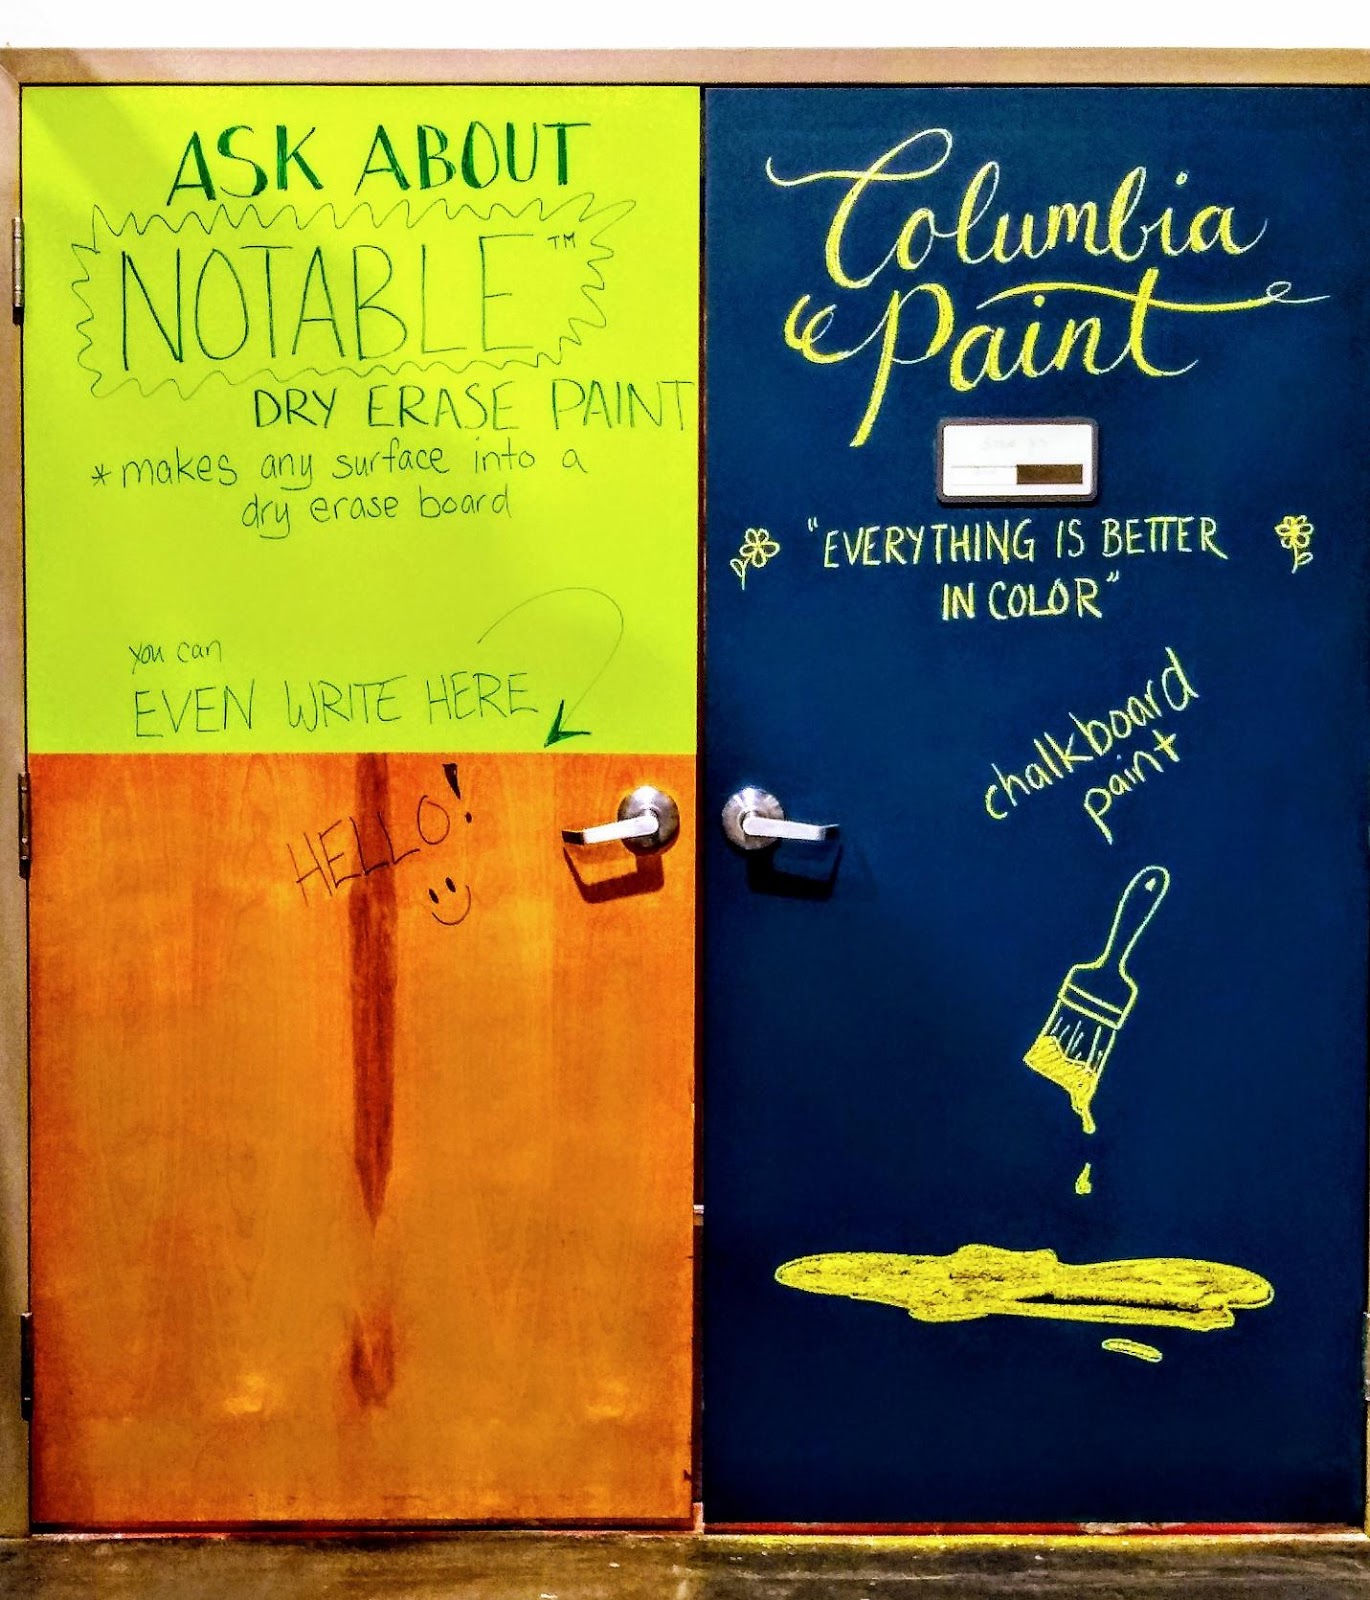 ASK ABOUT
NOTABLE™
DRY ERASE PAINT
*makes any surface into a
dry erase board
you can
EVEN WRITE HERE
HELLO!
Columbia
Paint
"EVERYTHING IS BETTER
IN COLOR"
chalkboard
paint